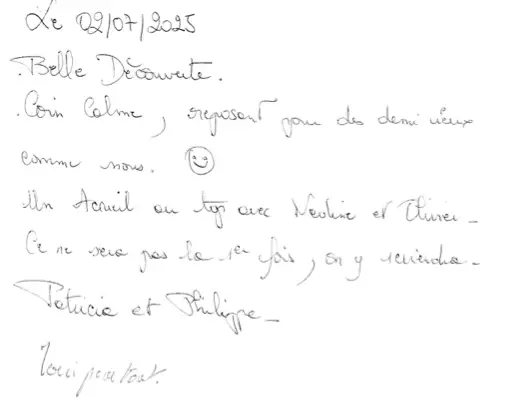 Le 02/07/2025
. Belle Découverte.
. Coin Calme, reposant pour des demi vieux
comme nous. ☺
Un Accueil au top avec et Olivier -
Ce ne sera pas la 1er fois, on y reviendra -
Patricia et Philippe -
Merci pour tout.